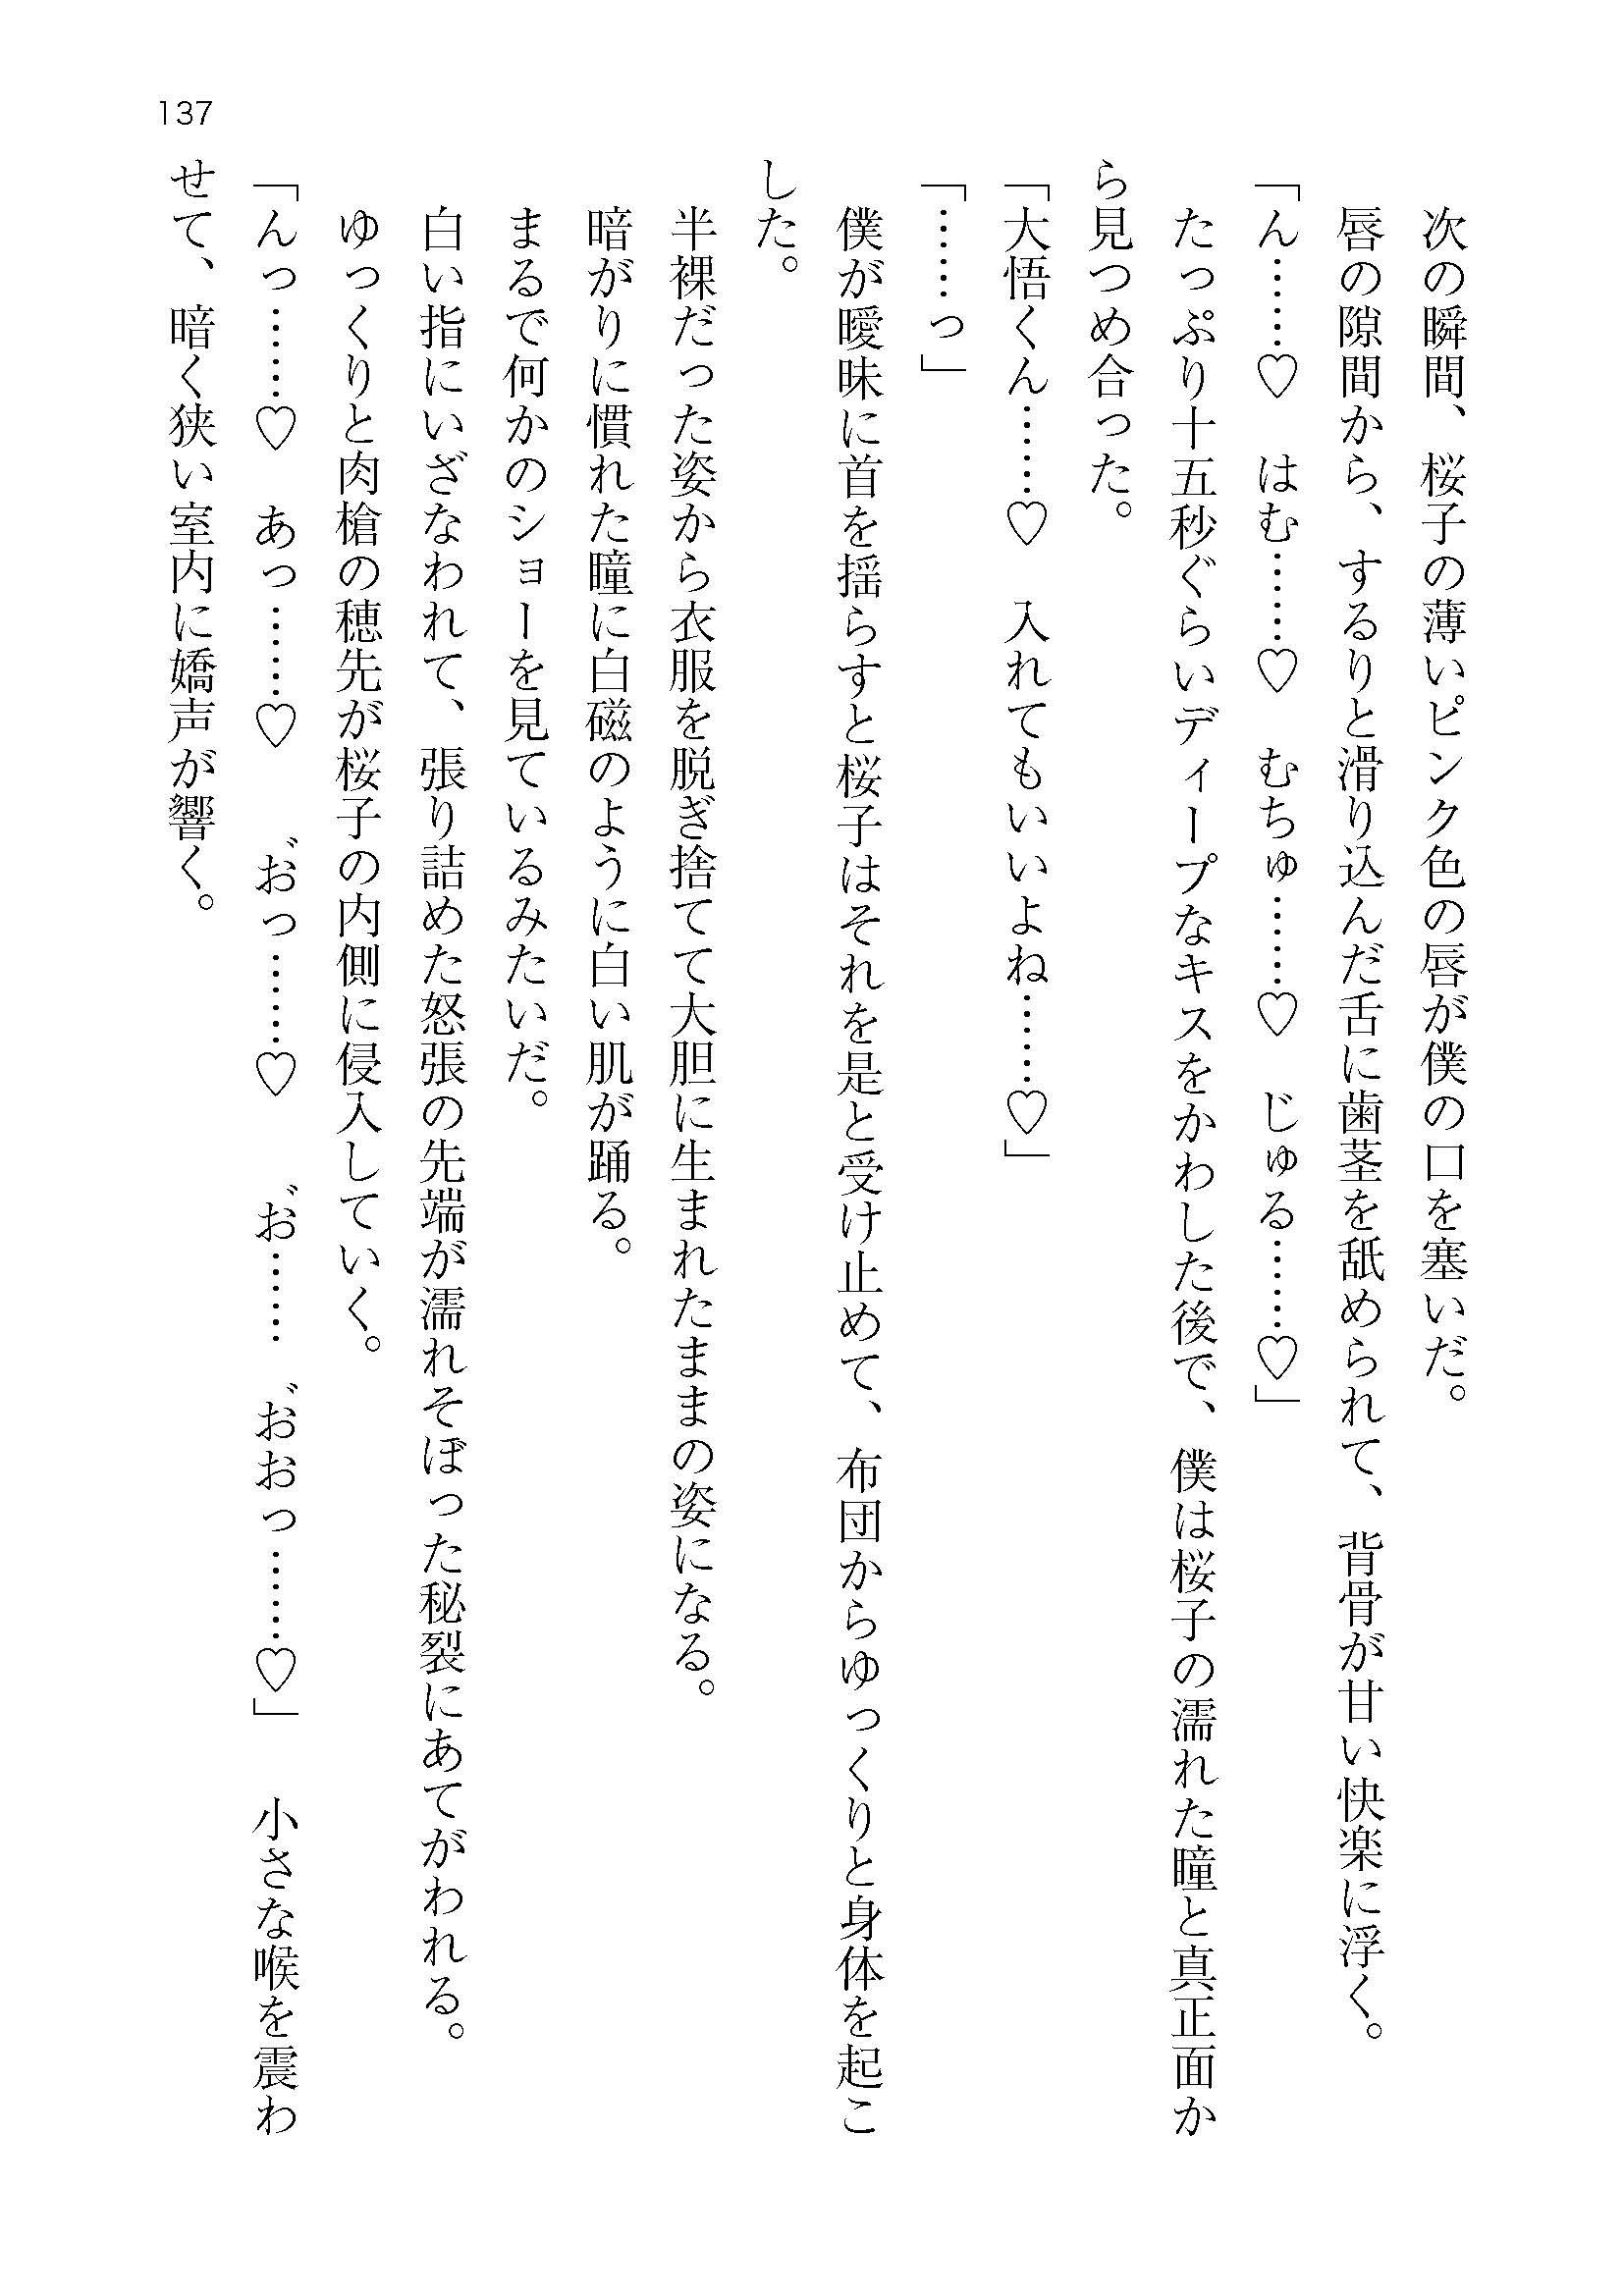 137
次の瞬間、桜子の薄いピンク色の唇が僕の口を塞いだ。
唇の隙間から、するりと滑り込んだ舌に歯茎を舐められて、背骨が甘い快楽に浮く。
「ん……♡　はむ……♡　むちゅ……♡　じゅる……♡」
たっぷり十五秒ぐらいディープなキスをかわした後で、僕は桜子の濡れた瞳と真正面か
ら見つめ合った。
「大悟くん……♡　入れてもいいよね……♡」
「……っ」
僕が曖昧に首を揺らすと桜子はそれを是と受け止めて、布団からゆっくりと身体を起こ
した。
半裸だった姿から衣服を脱ぎ捨てて大胆に生まれたままの姿になる。
暗がりに慣れた瞳に白磁のように白い肌が踊る。
まるで何かのショーを見ているみたいだ。
白い指にいざなわれて、張り詰めた怒張の先端が濡れそぼった秘裂にあてがわれる。
ゆっくりと肉槍の穂先が桜子の内側に侵入していく。
「んっ……♡　あっ……♡　゛おっ……♡　゛お……　゛おおっ……♡」　小さな喉を震わ
せて、暗く狭い室内に嬌声が響く。